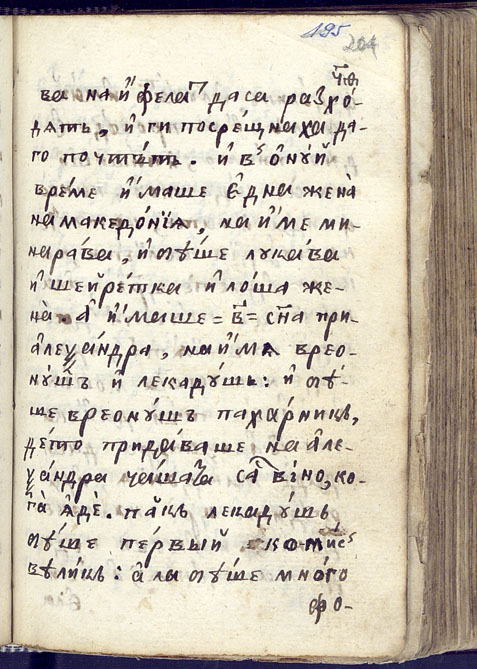 195
204
ч҃ѳ
ва на и҆ фела҇п да са разхо́-
дѧтъ, и҆ ги посре́щнаха да-
го почтѧ́тъ. и҆ в ѻ҆ну́й
вре́ме и҆́маше е҆́дна жена̀
на македо́нїѧ, на и҆́ме ми-
нера́ва, и҆ бѣ́ше лука́ва
и҆ шейре́тка и҆ ло́ша же-
на̀. а҆ и҆́маше = в҃ = сн҃а при-
а҆леѯа́ндра, на и҆́мѧ врео-
ну́шъ и҆ лекаду́шъ: и҆ бѣ́-
ше вреону́шъ паха́рникъ,
де́то прида́ваше на а҆ле-
ѯа́ндра ча́шата са віно, ко-
га̀ ꙗ҆дѐ. па́къ лекаду́шъ
бѣ́ше пе́рвый
вѣ́ликъ: а҆ла бѣ́ше мно́го
фо-